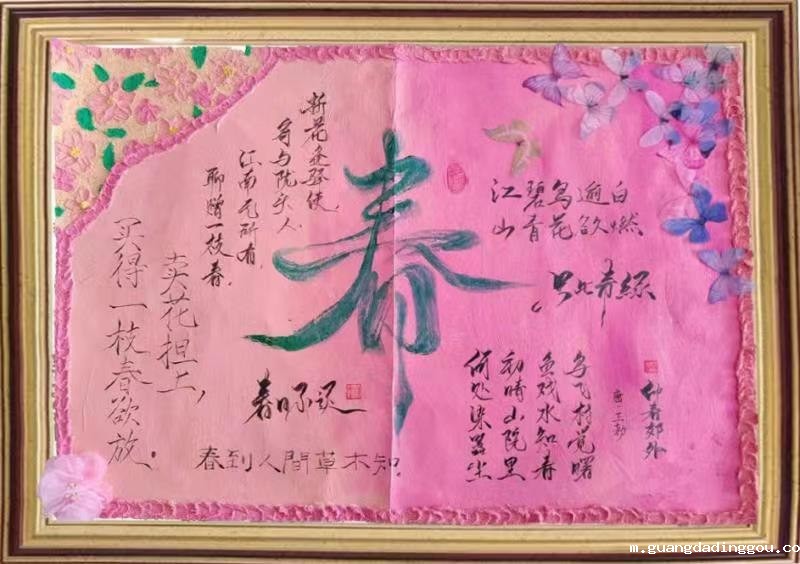 江碧鸟逾白
山青花欲燃
只此青绿
仲春郊外
唐·王勃
鸟飞村觉曙
鱼戏水知春
初晴山院里
何处染嚣尘
春
折花逢驿使，
寄与陇头人.
江南无所有，
聊赠一枝春.
卖花担上，
买得一枝春欲放.
春到人間草木知.
m.guangdadinggou.co